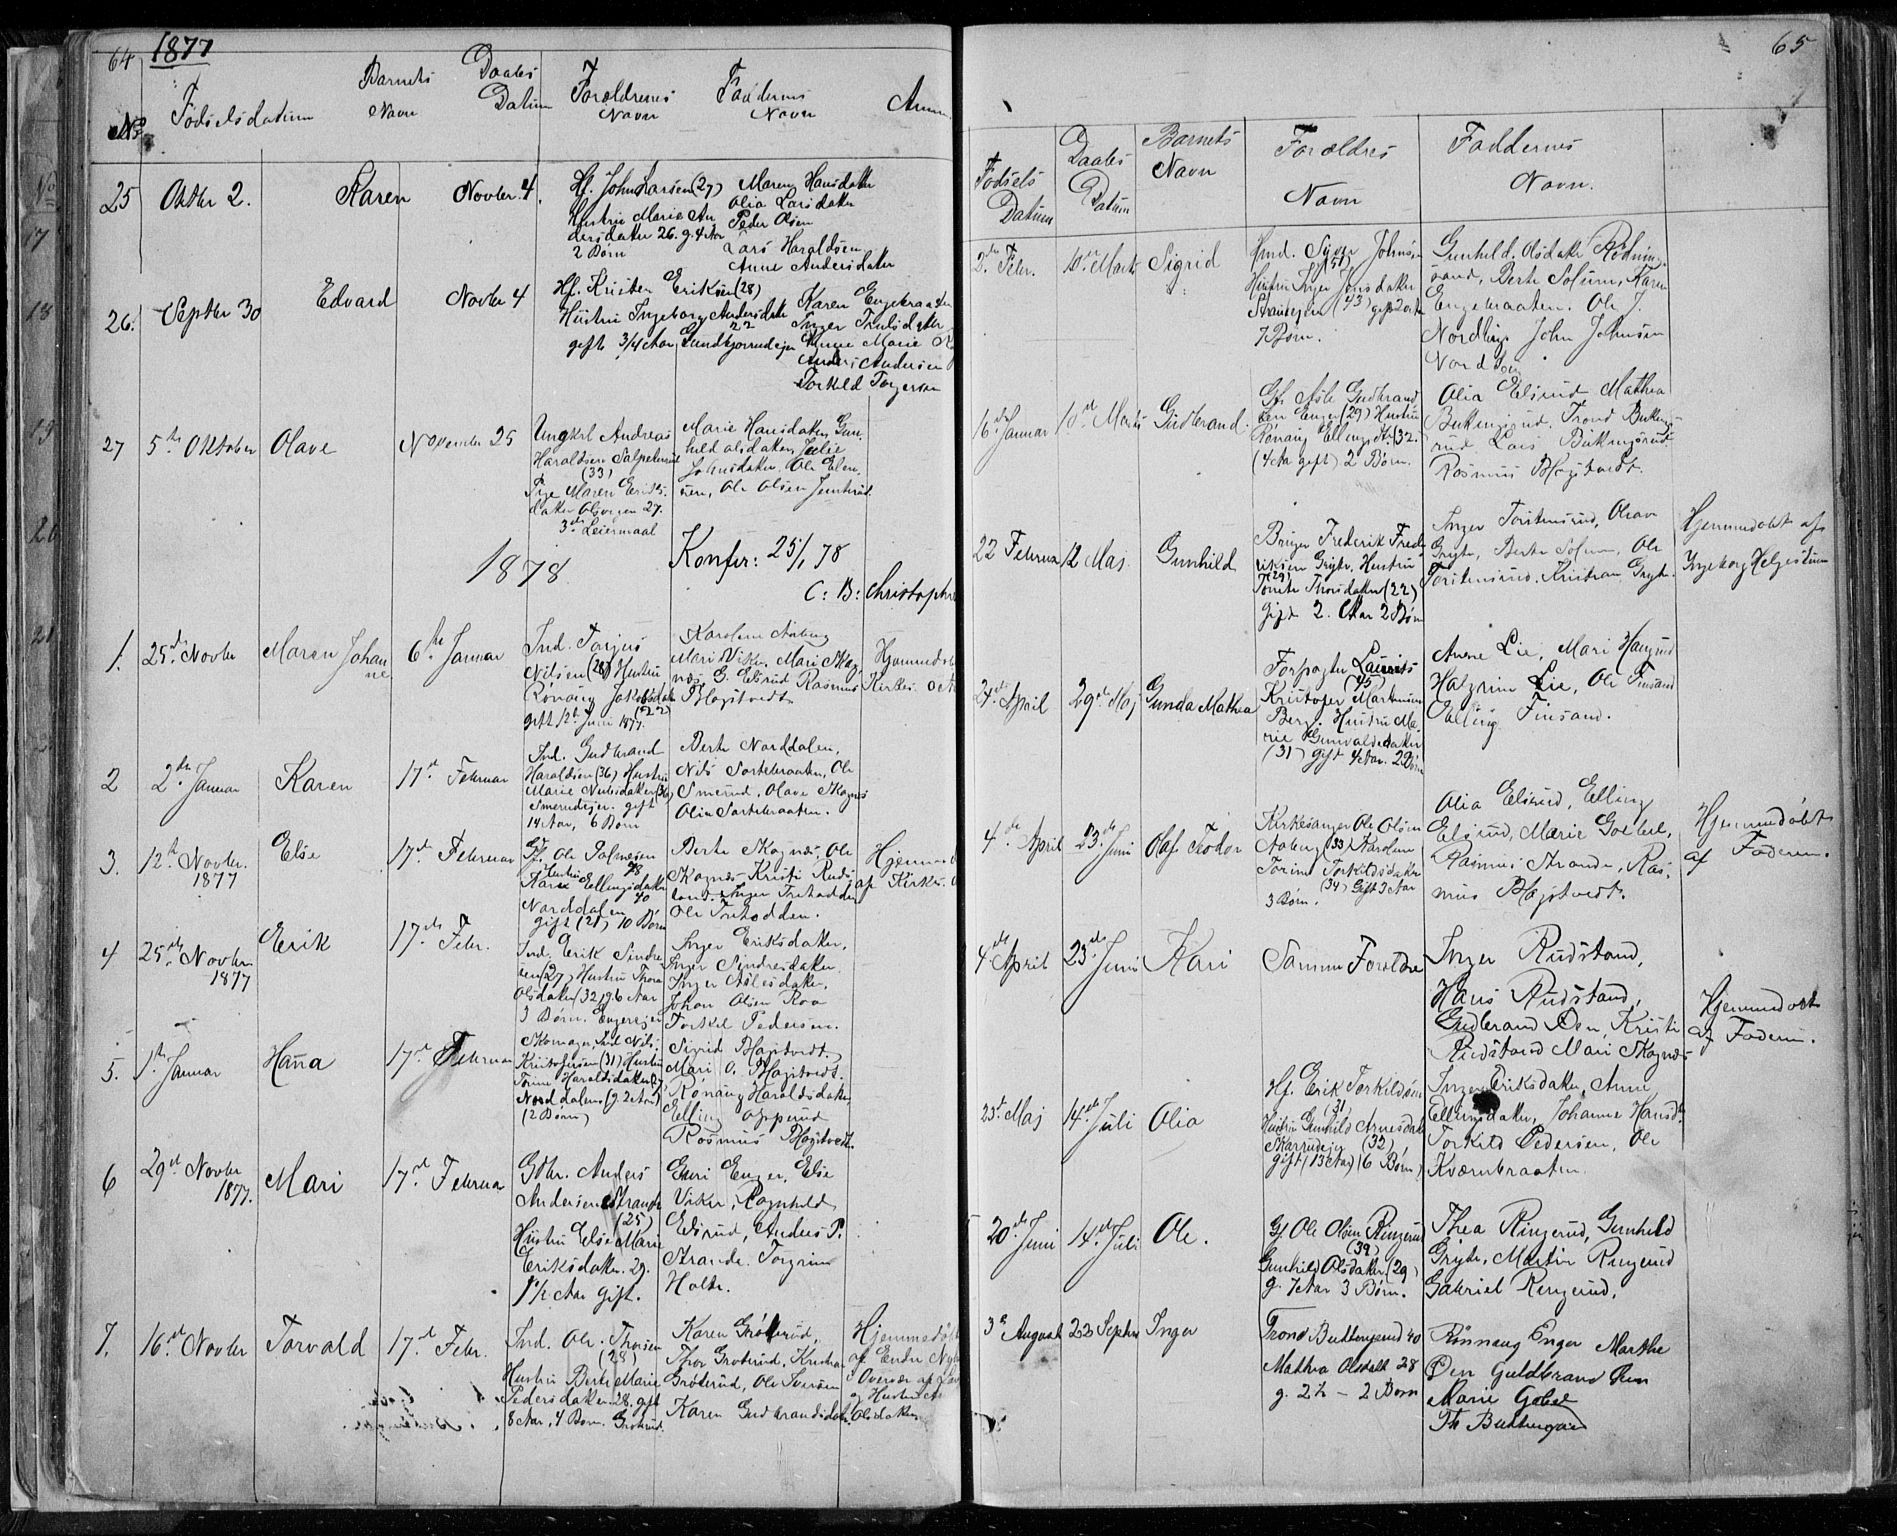 64 1877
No
Fødselsdatum
Barnets Navn
Daabs Datum
Forældrenes Navn
Faddernes Navn
25 Oktbr 2. Karen Novbr. 4.
Hf. John Larsen (27)
Hustru Marie An
dersdatter 26. g. 4 Aar
2 Børn
Maren Hansdatter
Olia Larsdatter
Peder Olsen
Lars Haraldsen
Anne Andersdatter
26. Septbr 30 Edvard Novbr 4
Hf. Kristen Eriksen (28)
Hustru Ingeborg Andersdatter
22
gift 3/4 Aar
Karen Engebraaten
Inger Trulsdatter
Anne Marie
Anders Andersen
Torkild Torgersen
27 5te Oktober Olave November 25
Ungkrl Andreas
Haraldsen
(33)
Pige Maren Eriks-
datter 27.
3die Leiermaal
Marie Hansdatter, Gun-
hild Olsdatter, Julie
Johnsdatter, Ole
sen, Ole Olsen
1878
Konfer: 25/1 78
C: B: Christoph
1. 25de Novbr Maren Johan
ne 6te Januar
Ind. Torjus
Nilsen (28) Hustru
Rønaug Jakobsdatter
(22)
gift 12te Juni 1877.
Karoline Aaberg
Mari Viker, Mari Skag
næs, G. Elsrud Rasmus
Bagstvedt
Hjemmedøbt
Kirkes.
2 2den Januar Karen 17de Februar
Ind. Gudbrand
Haraldsen (36) Hustru
Marie Nubsdatter (36)
Smerudejer. gift
14 Aar, 6 Børn
Berte Norddalen,
Nils Sortebraaten, Ole
Smerud, Olave Skagnæs
Olia Sortebraaten.
3. 12te Novbr.
1877 Else 17de Februar
Gf. Ole
48
Hustru
Karen Ellingsdatter
40
Norddalen
gift (21) 10 Børn
Berte Skagnæs, Ole
Skagnæs Kristi Ruds
land. Inger Tretodden
Ole Tretodden.
Hjemmed
af Kirkes.
4 25de Novbr.
1877 Erik 17de Febr.
Ind. Erik Sindre
sen (27) Hustru Thora
Olsdatter (32) g. 6 Aar
3 Børn. Engerejer
Inger Eriksdatter,
Inger Sindresdatter
Inger Aslesdatter,
Johan Olsen Roa
Torkel Pedersen.
5. 1ste Januar Hanna 17de Februar
Skomager, Ind. Nils
Kristofersen (31) Hustru
Tonne Haraldsdatter
Norddalen (g. 2 Aar)
(2 Børn)
Sigrid Bagstvedt.
Mari O. Bagstvedt.
Rønaug Haraldsdatter
Elling Opperud
Rasmus Bagstvedt.
6 29de Novbr
1877. Mari 17de Februar
Gbr. Anders
Andersen Strande
(25)
Hustru Else Marie
Eriksdatter. 29.
1½ Aar gift.
Guri Enger, Else
Viker, Ragnhild
Elsrud, Anders P.
Strande. Torgrim
Holte.
7. 16de Novbr Torvald 17de Febr.
Ind. Ole Thorsen
(28)
Hustru Berte Marie
Pedersdatter 28. gift
8 Aar, 4 Børn. Grøterud
Karen Grøterud,
Thor Grøterud, Kristian
Grøterud, Ole Iversen
Karen Gudbrandsdatter
Hjemmedøbt
af Endre
Overvær af
og Hustru
Olsdatter
65
Fødsels Datum
Daabs Datum
Barnets Navn
Forældres Navn
Faddernes Navn.
2den Febr. 10de Marts Sigrid
Hmd. Syver Johnsen
(51)
Hustru Inger Jonsdatter
Strandejen (43) gift
7 Børn.
Gunhild Olsdatter Rødnings
sand, Berte Solum, Karen
Engebraaten. Ole J.
Nordeng John Johnsen
Nordeng
16de Januar 10de Marts Gudbrand.
Gf. Asle Gudbrand
sen Enger (29) Hustru
Rønaug Ellingsdtr (32.
(4 Aar gift) 2 Børn.
Olia Elsrud Mathea
Buttingsrud, Trond Buttings
rud Lars Buttingsrud.
Rasmus Bagstvedt.
22 Februar 12 Maj. Gunhild
Bruger Frederik Frede
riksen Gryte. Hustru
(29)
Tonete Thorsdatter (22)
Gift 2. Aar 2 Børn
Inger Torstensrud, Olava
Gryte, Berte Solum, Ole
Torstensrud. Kristian Gryte.
Hjemmedøbt af
Ingeborg Helgestuen
24de April 29de Maj Gunda Mathea
Forpagter Laurits
(45)
Kristofer Martinius
Berg. Hustru Ma-
rie Gunvaldsdatter
(31) gift 4 Aar. 2 Børn
Anne Lie, Mari Haugsrud
Halgrim Lie, Ole Finsand
Elling Finsand.
4de April 23de Juni Olaf Teodor
Kirkesanger Ole Olsen
Aaberg (33) Karoline
Torine Torkildsdatter
(34) Gift 3 Aar
3 Børn.
Olia Elsrud, Elling
Elsrud, Marie Goebel,
Rasmus Strande, Ras-
mus Bagstvedt.
Hjemmedøbt
af Faderen.
4de April 23de Juni Kari
Samme Forældre
Inger Rudstand,
Hans Rudstand,
Gudbrand Øen, Kristi
Rudstand Mari Skagnæs
Hjemmedøbt
af Faderen.
23de Maj 14de Juli Olia
Hf. Erik Torkildsen
(31
Hustru Gunhild Arnesdatter
Skarrudejer (32)
gift (13 Aar) (6 Børn)
Inger Eriksdatter, Anne
Ellingsdatter, Johanne Hansdtr.
Torkild Pedersen, Ole
Kværnbraaten.
20de Juni 14de Juli Ole.
Gf. Ole Olsen Ringerud
(39)
Gunhild Olsdatter (29)
g. 7 Aar 3 Børn.
Thea Ringerud, Gunhild
Gryte, Martin Ringerud
Gabriel Ringerud.
3e August 22 Septbr Inger
Trond Buttingsrud 40
Mathea Olsdatt 28
g. 2½ – 2 Børn
Rønnaug Enger Marthe
Øen Guldbrand Øen
Marie Gøbel
Th Buttingsrud